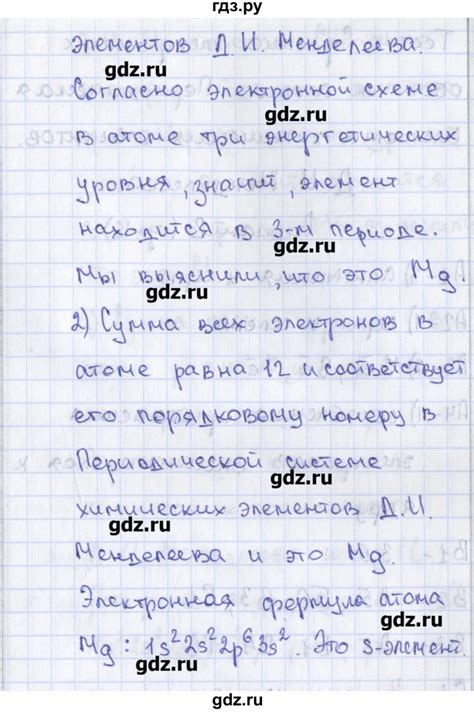 гдз.ру
элементов Д.И. Менделеева.
gdz.ru
Согласно электронной схеме
gdz.ru
в атоме три энергетических
gdz.ru
уровня, значит, элемент
gdz.ru
находится в 3-м периоде.
gdz.ru
Мы выяснили, что это Mg.
gdz.ru
2) Сумма всех электронов в
gdz.ru
атоме равна 12 и соответствует
gdz.ru
его порядковому номеру в
gdz.ru
Периодической системе
gdz.ru
химических элементов Д.И.
gdz.ru
Менделеева и это Mg.
gdz.ru
Электронная формула атома
gdz.ru
Mg: 1s²2s²2p⁶3s². Это s-элемент.
gdz.ru